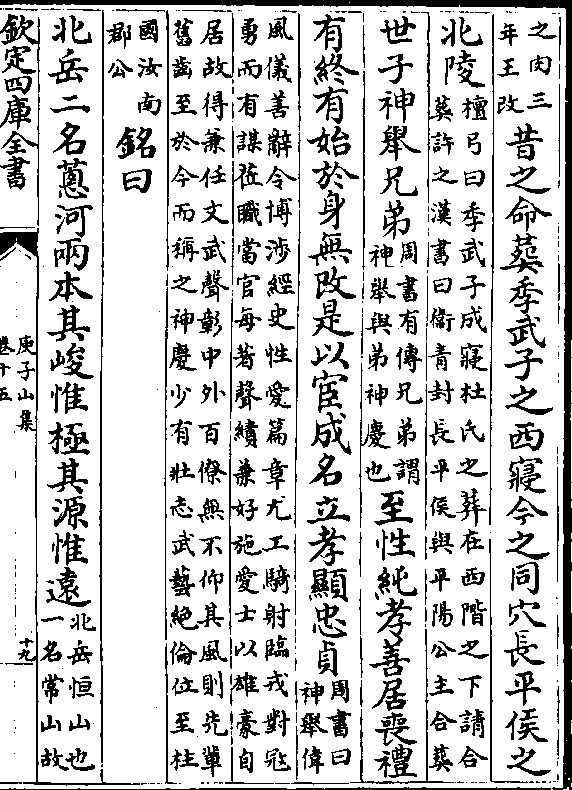 之肉三
年王改
昔之命葬季武子之西寢今之同穴長平侯之
北陵
檀弓曰季武子成寢杜氏之葬在西階之下請合
葬許之漢書曰衛青封長平侯與平陽公主合葬
世子神舉兄弟
周書有傳兄弟謂
神舉與弟神慶也
至性純孝善居喪禮
有終有始於身無改是以宦成名立孝顯忠貞
周書曰
神舉偉
風儀善辭令博涉經史性愛篇章尤工騎射臨戎對寇
勇而有謀莅職當官每著聲績兼好施愛士以雄豪自
居故得兼任文武聲彰中外百僚無不仰其風則先輩
舊齒至於今而稱之神慶少有壯志武藝絕倫位至柱
國汝南
郡公
銘曰
北岳二名蔥河兩本其峻惟極其源惟遠
北岳恒山也
一名常山故
欽定四庫全書
庾子山集
卷十五
十九